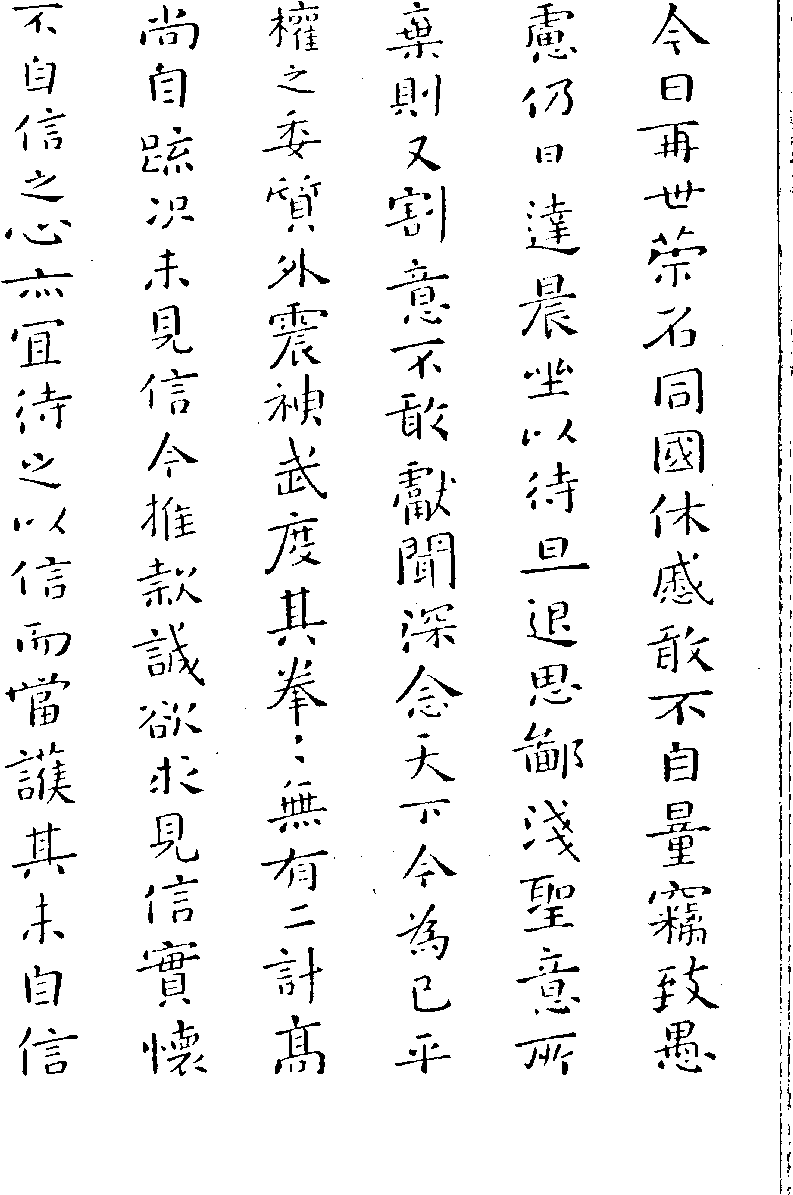 今日再世荣名同國休慼敢不自量竊致愚
慮仍日達晨坐以待旦退思鄙淺聖意所
棄則又割意不敢獻聞深念天下今為已平
權之委質外震神武度其拳〻無有二計高
尚自疏况未見信今推款誠欲求見信實懷
不自信之心亦冝待之以信而當護其未自信